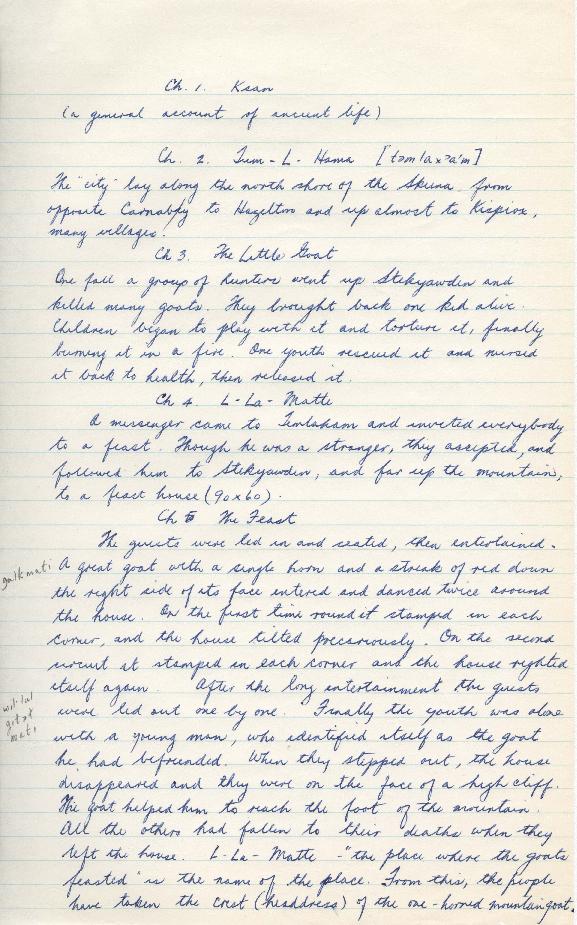 Ch. 1. Ksan
(a general account of ancient life)
Ch. 2. Tum-L-Hama [təmlaxɔa'm]
The "city" lay along the north shore of the Skeena from
opposite Carnaby to Hazelton and up almost to Kispiox,
many villages.
Ch 3. The Little Goat
One fall a group of hunters went up Stekyawden and
killed many goats. They brought back one kid alive.
Children began to play with it and torture it, finally
burning it in a fire. One youth rescued it and nursed
it back to health, then released it.
Ch 4. L-La-Matte
A messenger came to Temlaham and invited everybody
to a feast. Though he was a stranger, they accepted, and
followed him to Stekyawden, and far up the mountain,
to a feast house (90x60).
Ch 5 The Feast
The guests were led in and seated, then entertained.
A great goat with a single horn and a streak of red down
the right side of its face entered and danced twice around
the house. On the first time round it stamped in each
corner, and the house tilted precariously. On the second
circuit it stamped in each corner and the house righted
itself again. After the long entertainment the guests
were led out one by one. Finally the youth was alone
with a young man, who identified itself as the goat
he had befriended. When they stepped out, the house
disappeared and they were on the face of a high cliff.
The goat helped him to reach the foot of the mountain.
All the others had fallen to their deaths when they
left the house. L-La-Matte - "the place where the goats
feasted" is the name of the place. From this, the people
have taken the crest (headdress) of the one-horned mountain goat.